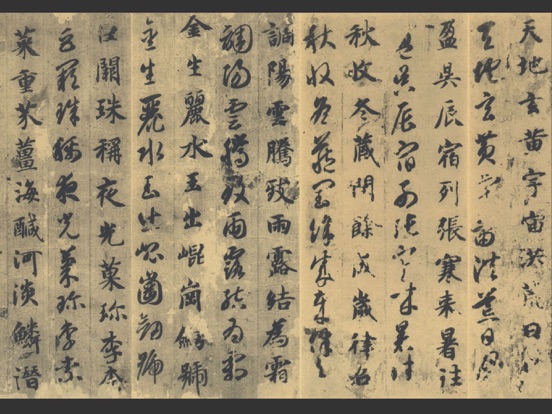 天地玄黃宇宙洪荒日月
天地玄黃宇宙洪荒日月
盈昃辰宿列張寒來暑往
盈昃辰宿列張寒來暑往
秋收冬藏閏餘成歲律呂
秋收冬藏閏餘成歲律呂
調陽雲騰致雨露結為霜
調陽雲騰致雨露結為霜
金生麗水玉出崐崗劒號
金生麗水玉出崐崗劒號
巨闕珠稱夜光菓珍李柰
巨闕珠稱夜光菓珍李柰
菜重芥薑海鹹河淡鱗潛